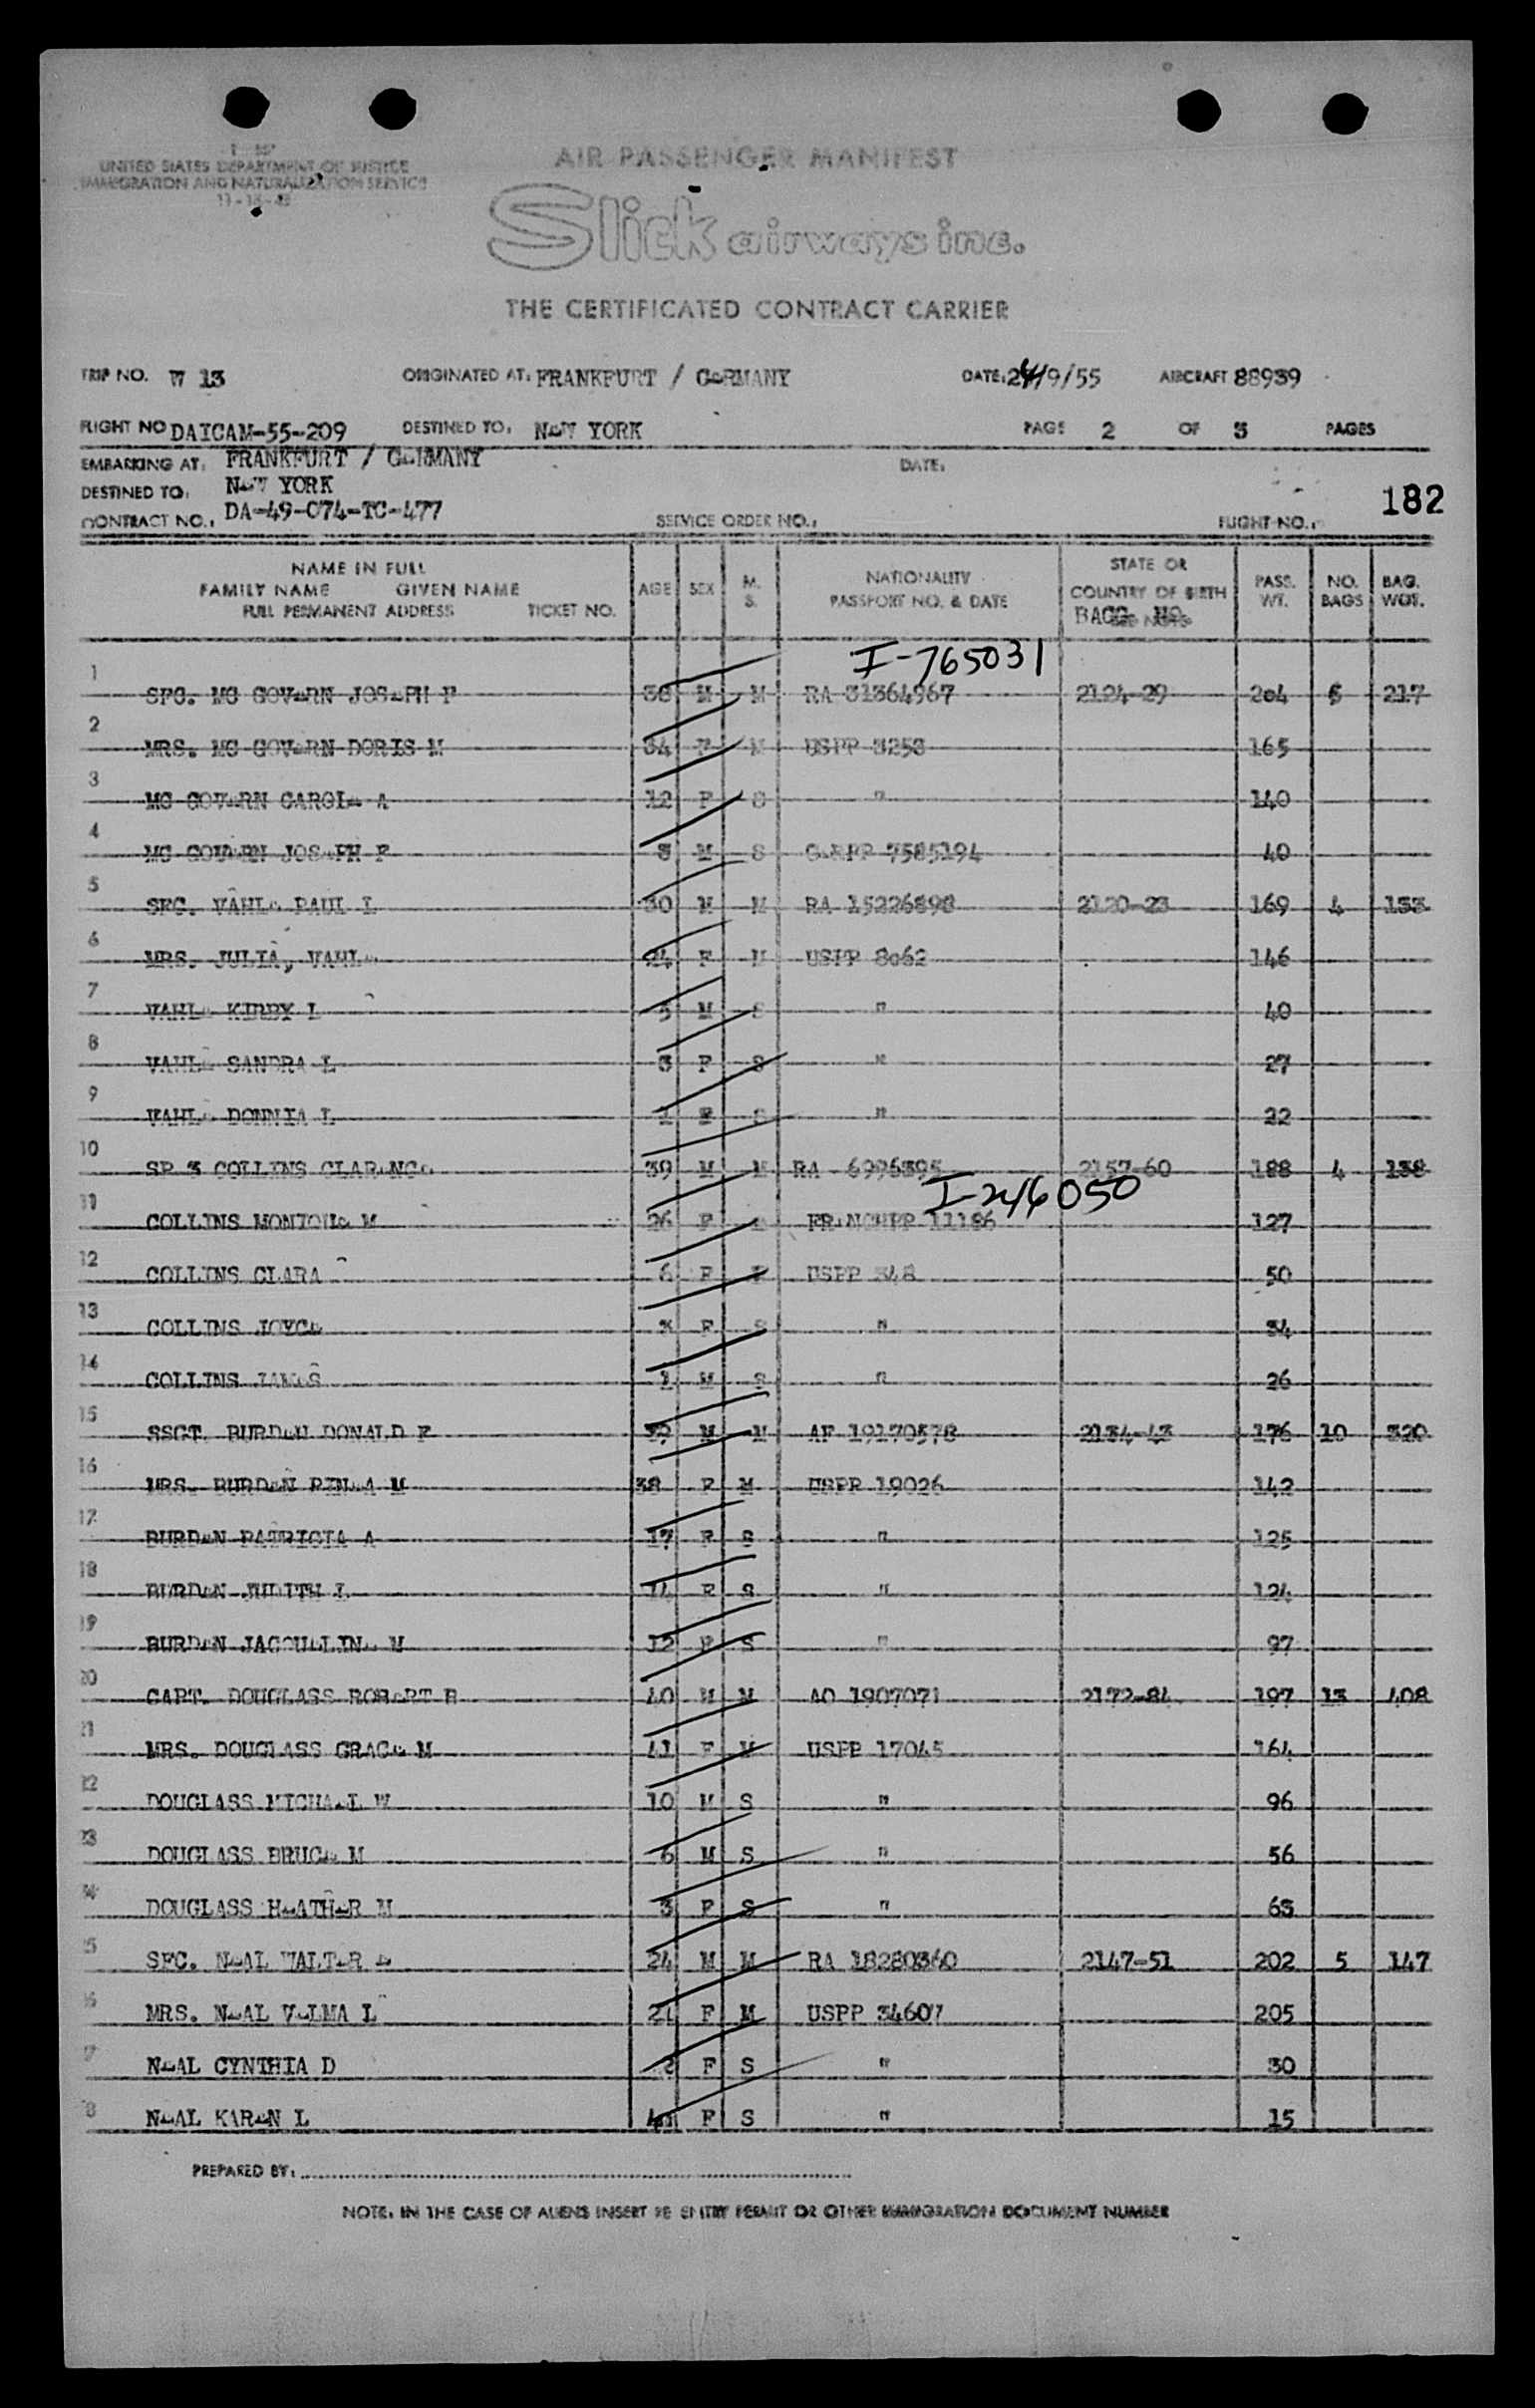 UNITED STATES DEPARTMENT OF JUSTICE
IMMIGRATION AND NATURALIZATION SERVICE
AIR PASSENGER MANIFEST
Slick airways inc.
THE CERTIFICATED CONTRACT CARRIER
TRIP NO. W 13 ORIGINATED AT: FRANKFURT / GeRMANY DATE: 24/9/55 AIRCRAFT 88939
FLIGHT NO DAICAM-55-209 DESTINED TO: NeW YORK PAGE 2 OF 3 PAGES
EMBARKING AT: FRANKFURT / GeRMANY DATE:
DESTINED TO: NeW YORK
182
CONTRACT NO.: DA-49-074-TC-477 SERVICE ORDER NO.: FLIGHT NO.:
NAME IN FULL
FAMILY NAME GIVEN NAME
FULL PERMANENT ADDRESS TICKET NO.
AGE SEX M. S.
NATIONALITY
PASSPORT NO. & DATE
STATE OR
COUNTRY OF BIRTH
BAGG. NO.
PASS. WT. NO. BAGS BAG. WGT.
I-765031
1 SFC. MC GOVeRN JOSePH F 38 M M RA 31364967 2124-29 204 6 217
2 MRS. MC GOVeRN DORIS M 34 F M USPP 3253 165
3 MC GOVeRN CAROLe A 12 F S " 140
4 MC GOVeRN JOSePH F 3 M S GeRPP 7585194 40
5 SFC. VAHLe PAUL L 30 M M RA 15226898 2120-23 169 4 133
6 MRS. JULIA, VAHLe 24 F M USPP 8062 146
7 VAHLe KIRBY L 5 M S " 40
8 VAHLe SANDRA L 3 F S " 27
9 VAHLe DONNIA L 1 F S " 22
10 SP 3 COLLINS CLAReNCe 39 M M RA 6996395 2157-60 188 4 138
I-246050
11 COLLINS MONIQUe M 26 F FReNCHPP 11186 127
12 COLLINS CLARA 6 F USPP 348 50
13 COLLINS JOYCe 3 F S " 34
14 COLLINS JAMeS 1 M S " 26
15 SSGT. BURDeN DONALD F 39 M M AF 19170578 2134-43 176 10 320
16 MRS. BURDeN M 38 F M USPP 19026 142
17 BURDeN PATRICIA A 17 F S " 125
18 BURDeN JUDITH L 14 F S " 124
19 BURDeN JACQUeLINe M 12 F S " 97
20 CAPT. DOUGLASS ROBeRT B 40 M M AO 1907071 2172-84 197 13 408
21 MRS. DOUGLASS GRACe M 41 F M USPP 17045 164
22 DOUGLASS MICHAeL W 10 M S " 96
23 DOUGLASS BRUCe M 6 M S " 56
24 DOUGLASS HeATHeR M 3 F S " 63
25 SFC. NeAL WALTeR e 24 M M RA 18280360 2147-51 202 5 147
26 MRS. NeAL VeLMA L 21 F M USPP 34607 205
27 NeAL CYNTHIA D 2 F S " 30
28 NeAL KAReN L F S " 15
PREPARED BY:
NOTE: IN THE CASE OF ALIENS INSERT RE ENTRY PERMIT OR OTHER IMMIGRATION DOCUMENT NUMBER